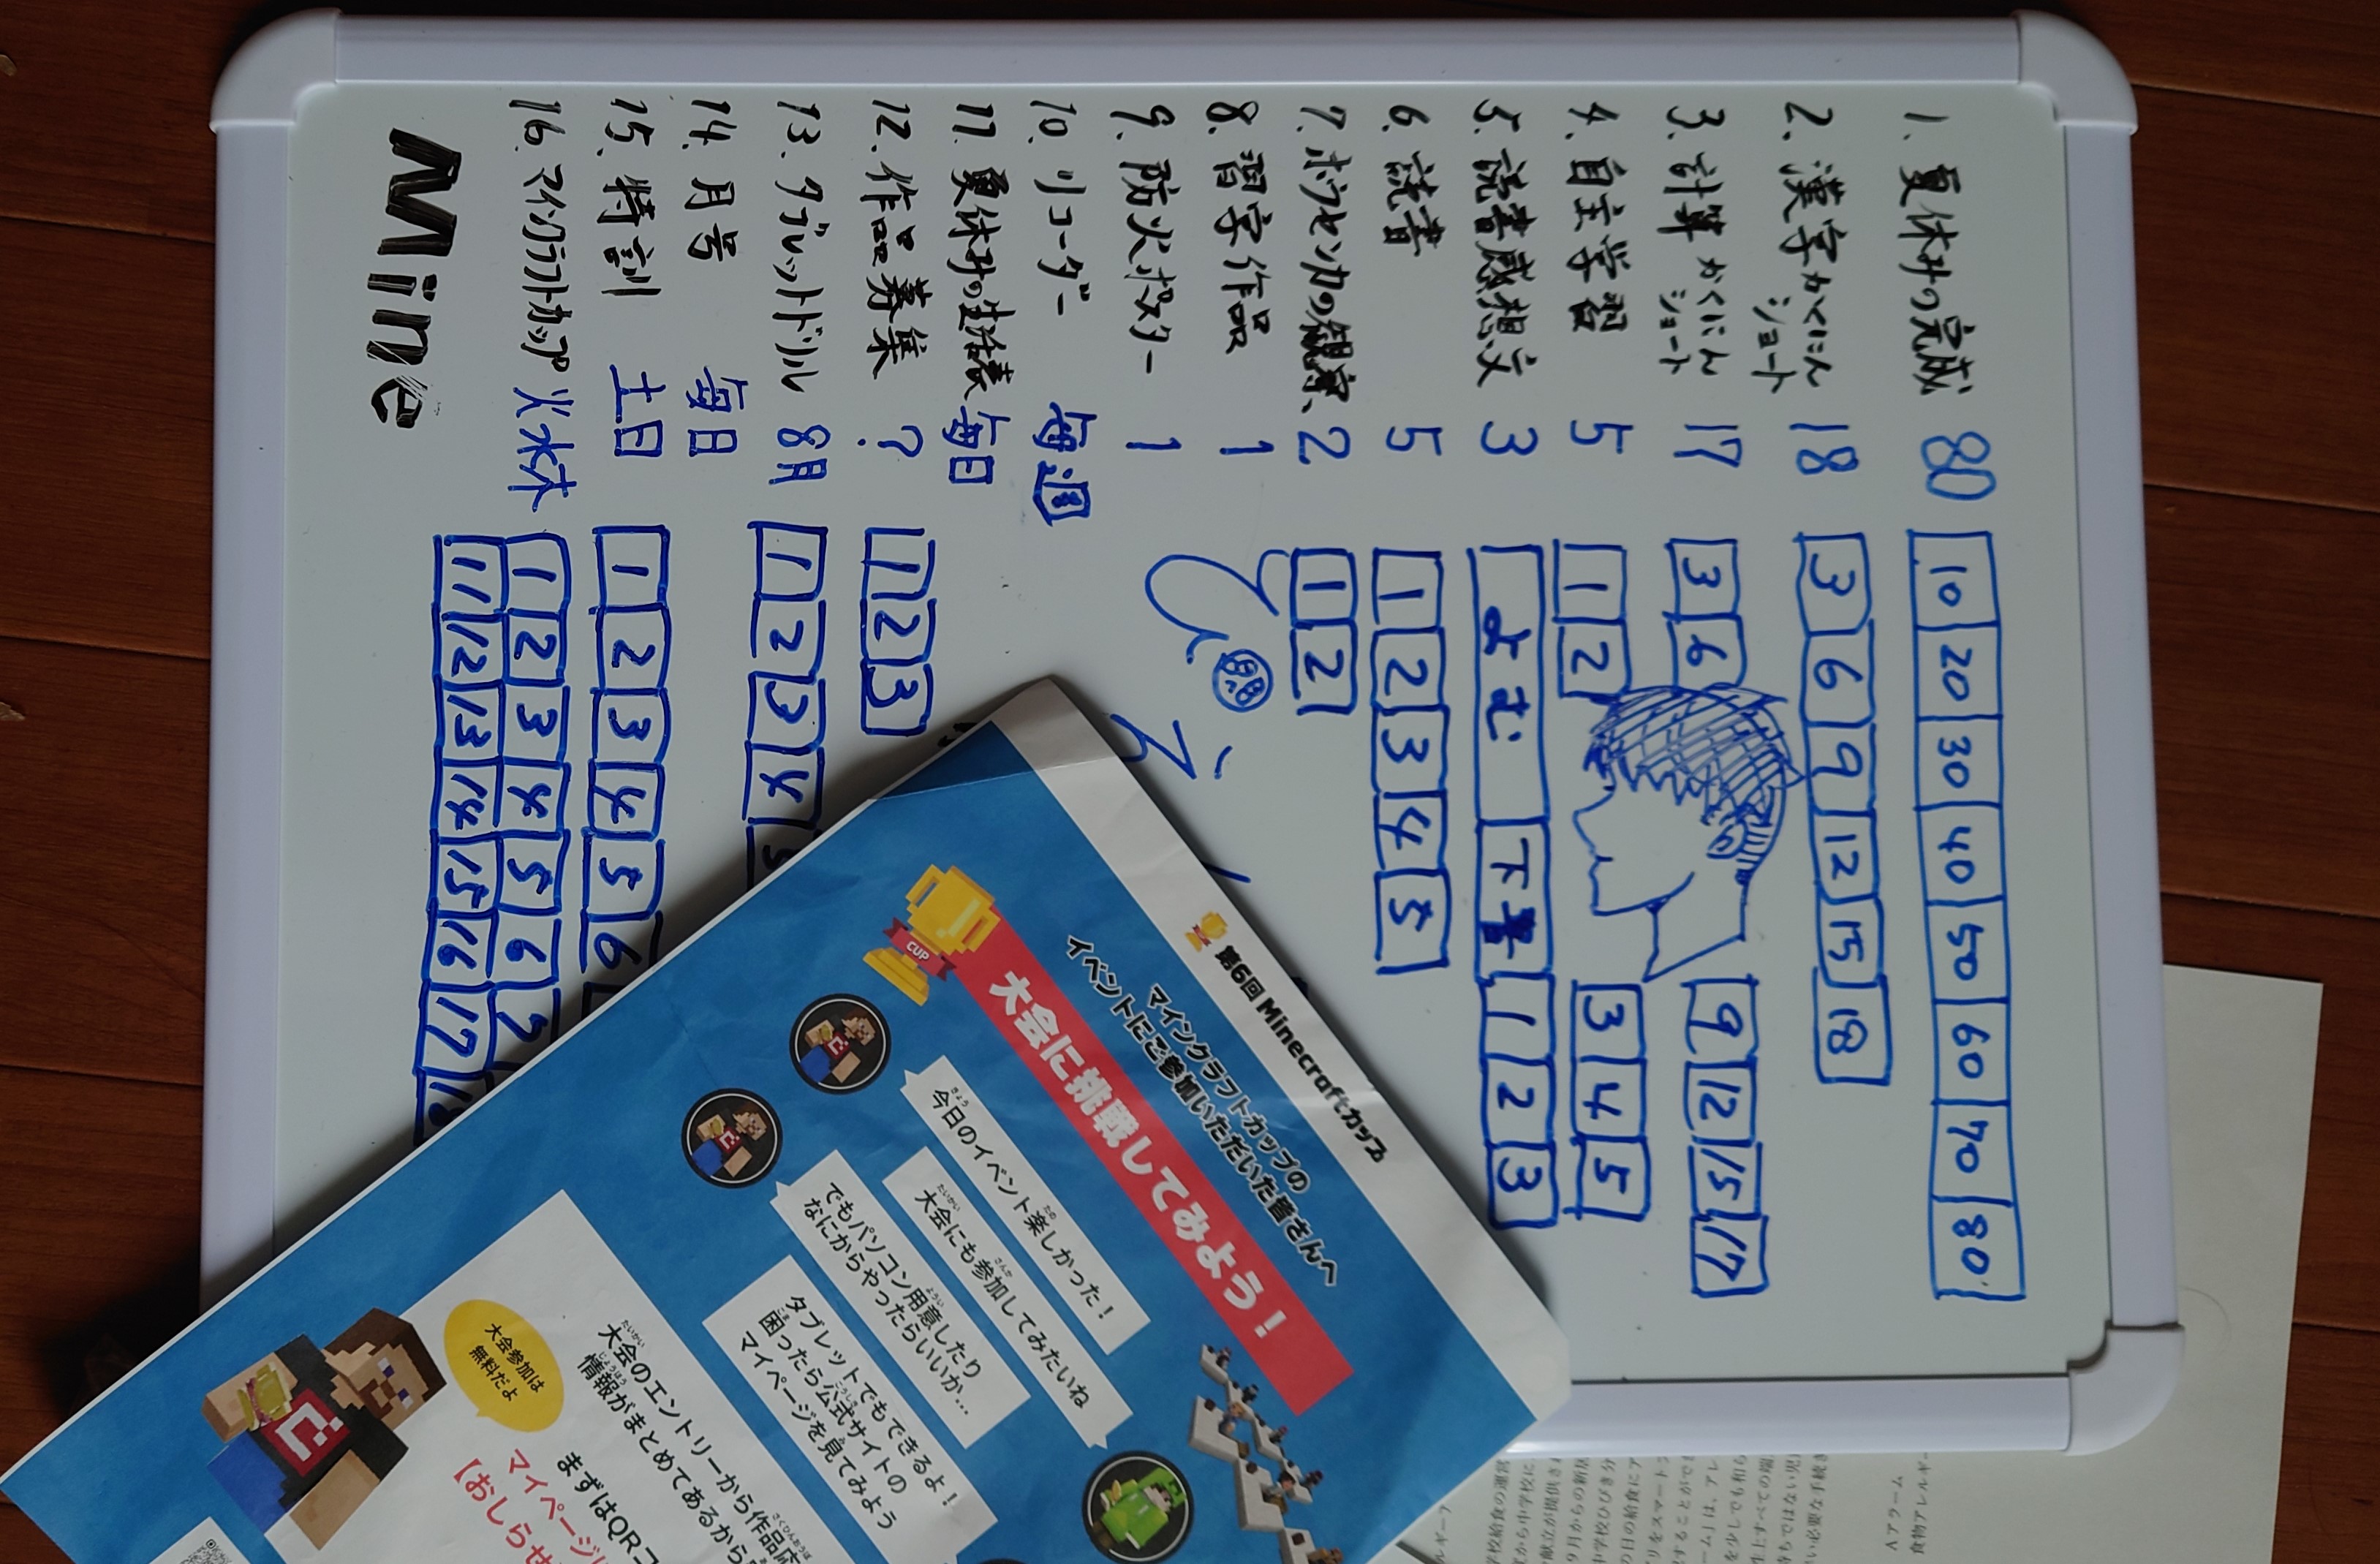 1. 夏休みの完成 80 10 20 30 40 50 60 70 80
2. 漢字かくにんショート 18 3 6 9 12 15 18
3. 計算かくにんショート 17 3 6 9 12 15 17
4. 自主学習 5 1 2 3 4 5
5. 読書感想文 3 よむ 下書 1 2 3
6. 読書 5 1 2 3 4 5
7. ホウセンカの観察 2 1 2
8. 習字作品 1
9. 防火ポスター 1
10. リコーダー 毎週
11. 夏休みの生活表 毎日
12. 作品募集 ? 1 2 3
13. タブレットドリル 8月 1 2 3 4 5
14. 月号 毎日
15. 特訓 土日 1 2 3 4 5 6
16. マインクラフトカップ 火水木 1 2 3 4 5 6 7
11 12 13 14 15 16 17
Mine
第6回 Minecraftカップ
マインクラフトカップの
イベントにご参加いただいた皆さんへ
CUP
大会に挑戦してみよう！
今日のイベント楽しかった！
大会にも参加してみたいね
でもパソコン用意したり
なにからやったらいいか…
タブレットでもできるよ！
困ったら公式サイトの
マイページを見てみよう
大会参加は
無料だよ
大会のエントリーから作品応
情報がまとめてあるから
まずはQRコ
マイページ
【おしらせ
Aアラーム
食物アレルギー